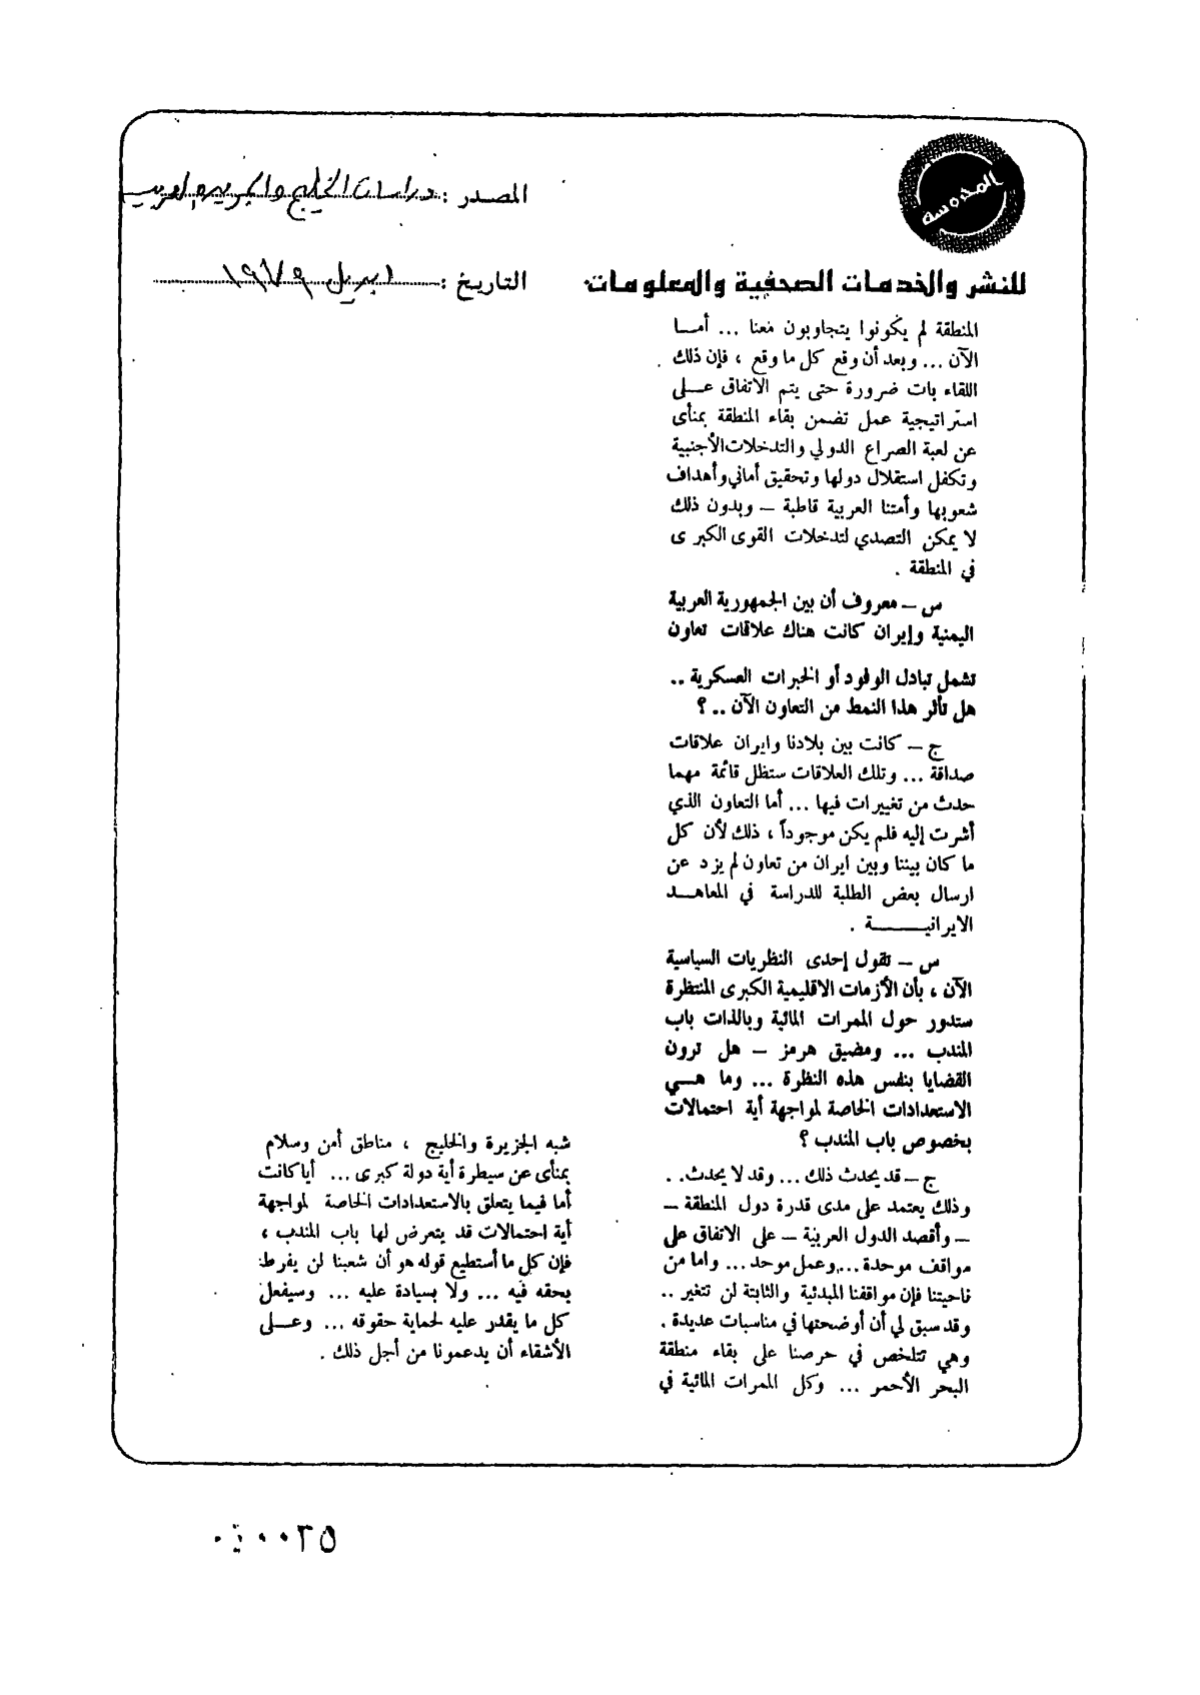 المحروسة
للنشر والخدمات الصحفية والمعلومات
المصدر : دراسات الخليج والجزيرة العربية
التاريخ : ابريل ١٩٧٩
المنطقة لم يكونوا يتجاوبون معنا ... أمــا
الآن ... وبعد أن وقع كل ما وقع ، فإن ذلك
اللقاء بات ضرورة حتى يتم الاتفاق عــلى
استراتيجية عمل تضمن بقاء المنطقة بمنأى
عن لعبة الصراع الدولي والتدخلات الأجنبية
وتكفل استقلال دولها وتحقيق أماني وأهداف
شعوبها وأمتنا العربية قاطبة – وبدون ذلك
لا يمكن التصدي لتدخلات القوى الكبرى
في المنطقة .
س – معروف أن بين الجمهورية العربية
اليمنية وإيران كانت هناك علاقات تعاون
تشمل تبادل الوفود أو الخبرات العسكرية ..
هل تأثر هذا النمط من التعاون الآن .. ؟
ج – كانت بين بلادنا وايران علاقات
صداقة ... وتلك العلاقات ستظل قائمة مهما
حدث من تغييرات فيها ... أما التعاون الذي
أشرت إليه فلم يكن موجوداً ، ذلك لأن كل
ما كان بيننا وبين ايران من تعاون لم يزد عن
ارسال بعض الطلبة للدراسة في المعاهــد
الايرانيـــــة .
س – تقول إحدى النظريات السياسية
الآن ، بأن الأزمات الاقليمية الكبرى المنتظرة
ستدور حول الممرات المائية وبالذات باب
المندب ... ومضيق هرمز – هل ترون
القضايا بنفس هذه النظرة ... وما هــي
الاستعدادات الخاصة لمواجهة أية احتمالات
بخصوص باب المندب ؟
ج – قد يحدث ذلك ... وقد لا يحدث . .
وذلك يعتمد على مدى قدرة دول المنطقة –
– وأقصد الدول العربية – على الاتفاق على
مواقف موحدة ... وعمل موحد ... واما من
ناحيتنا فإن مواقفنا المبدئية والثابتة لن تتغير ..
وقد سبق لي أن أوضحتها في مناسبات عديدة .
وهي تتلخص في حرصنا على بقاء منطقة
البحر الأحمر ... وكل الممرات المائية في
شبه الجزيرة والخليج ، مناطق أمن وسلام
بمنأى عن سيطرة أية دولة كبرى ... أيا كانت
أما فيما يتعلق بالاستعدادات الخاصة لمواجهة
أية احتمالات قد يتعرض لها باب المندب ،
فإن كل ما أستطيع قوله هو أن شعبنا لن يفرط
بحقه فيه ... ولا بسيادة عليه ... وسيفعل
كل ما يقدر عليه لحماية حقوقه ... وعــلى
الأشقاء أن يدعمونا من أجل ذلك .